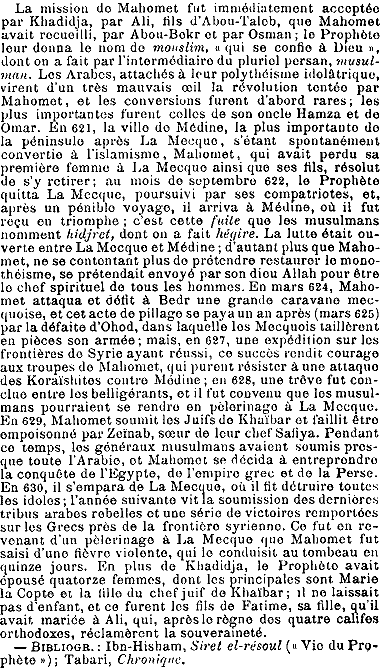 La mission de Mahomet fut immédiatement acceptée
par Khadidja, par Ali, fils d'Abou-Taleb, que Mahomet
avait recueilli, par Abou-Bekr et par Osman ; le Prophète
leur donna le nom de mouslim, « qui se confie à Dieu »,
dont on a fait par l'intermédiaire du pluriel persan, musul-
man. Les Arabes, attachés à leur polythéisme idolâtrique,
virent d'un très mauvais œil la révolution tentée par
Mahomet, et les conversions furent d'abord rares ; les
plus importantes furent celles de son oncle Hamza et de
Omar. En 621, la ville de Médine, la plus importante de
la péninsule après La Mecque, s'étant spontanément
convertie à l'islamisme, Mahomet, qui avait perdu sa
première femme à La Mecque ainsi que ses fils, résolut
de s'y retirer ; au mois de septembre 622, le Prophète
quitta La Mecque, poursuivi par ses compatriotes, et,
après un pénible voyage, il arriva à Médine, où il fut
reçu en triomphe ; c'est cette fuite que les musulmans
nomment hidjret, dont on a fait hégire. La lutte était ou-
verte entre La Mecque et Médine ; d'autant plus que Maho-
met, ne se contentant plus de prétendre restaurer le mono-
théisme, se prétendait envoyé par son dieu Allah pour être
le chef spirituel de tous les hommes. En mars 624, Maho-
met attaqua et défit à Bedr une grande caravane mec-
quoise, et cet acte de pillage se paya un an après (mars 625)
par la défaite d'Ohod, dans laquelle les Mecquois taillèrent
en pièces son armée ; mais, en 627, une expédition sur les
frontières de Syrie ayant réussi, ce succès rendit courage
aux troupes de Mahomet, qui purent résister à une attaque
des Koraïshites contre Médine ; en 628, une trêve fut con-
clue entre les belligérants, et il fut convenu que les musul-
mans pourraient se rendre en pèlerinage à La Mecque.
En 629, Mahomet soumit les Juifs de Khaïbar et faillit être
empoisonné par Zeïnab, sœur de leur chef Safiya. Pendant
ce temps, les généraux musulmans avaient soumis pres-
que toute l'Arabie, et Mahomet se décida à entreprendre
la conquête de l'Egypte, de l'empire grec et de la Perse.
En 630, il s'empara de La Mecque, où il fit détruire toutes
les idoles ; l'année suivante vit la soumission des dernières
tribus arabes rebelles et une série de victoires remportées
sur les Grecs près de la frontière syrienne. Ce fut en re-
venant d'un pèlerinage à La Mecque que Mahomet fut
saisi d'une fièvre violente, qui le conduisit au tombeau en
quinze jours. En plus de Khadidja, le Prophète avait
épousé quatorze femmes, dont les principales sont Marie
la Copte et la fille du chef juif de Khaïbar ; il ne laissait
pas d'enfant, et ce furent les fils de Fatime, sa fille, qu'il
avait mariée à Ali, qui, après le règne des quatre califes
orthodoxes, réclamèrent la souveraineté.
— BIBLIOGR. : Ibn-Hisham, Siret el-résoul (« Vie du Pro-
phète ») ; Tabari, Chronique.